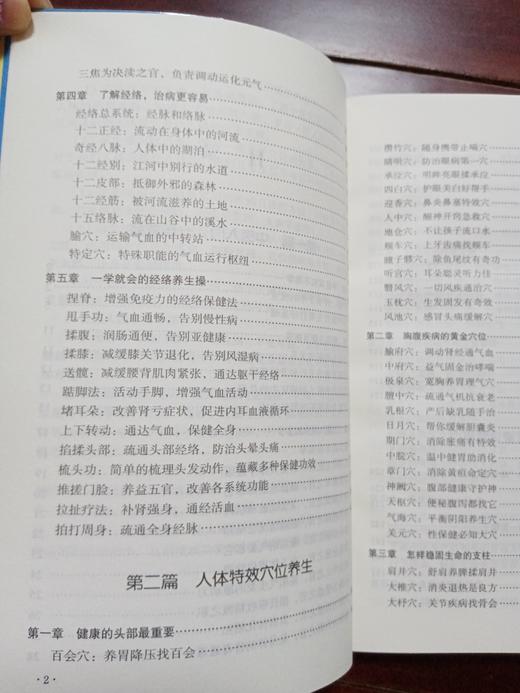 三焦为决渎之官，负责调动运化元气
第四章 了解经络，治病更容易
经络总系统：经脉和络脉
十二正经：流动在身体中的河流
奇经八脉：人体中的湖泊
十二经别：江河中别行的水道
十二皮部：抵御外邪的森林
十二经筋：被河流滋养的土地
十五络脉：流在山谷中的溪水
腧穴：运输气血的中转站
特定穴：特殊职能的气血运行枢纽
第五章 一学就会的经络养生操
捏脊：增强免疫力的经络保健法
甩手功：气血通畅，告别慢性病
揉腹：润肠通便，告别亚健康
揉膝：减缓膝关节退化，告别风湿病
送髋：减缓腰背肌肉紧张，通达躯干经络
踮脚法：活动手脚，增强气血活动
堵耳朵：改善肾亏症状，促进内耳血液循环
上下转动：通达气血，保健全身
掐揉头部：疏通头部经络，防治头晕头痛
梳头功：简单的梳理头发动作，蕴藏多种保健功效
推搓门脸：养益五官，改善各系统功能
拉扯疗法：补肾强身，通经活血
拍打周身：疏通全身经脉
第二篇 人体特效穴位养生
第一章 健康的头部最重要
百会穴：养胃降压找百会
·2·
攒竹穴：随身携带止嗝穴
睛明穴：防治眼病第一穴
承泣穴：明眸亮眼揉承泣
四白穴：护眼美白好帮手
迎香穴：鼻炎鼻塞特效穴
人中穴：醒神开窍急救穴
地仓穴：不让孩子流口水
颊车穴：上牙齿痛找颊车
瞳子髎穴：除鱼尾纹有奇功
听宫穴：耳朵聪灵听力佳
翳风穴：一切风疾通治穴
玉枕穴：生发固发有奇效
风池穴：感冒头痛缓解穴
第二章 胸腹疾病的黄金穴位
腧府穴：调动肾经通气血
中府穴：益气固金治哮喘
极泉穴：宽胸养胃理气穴
膻中穴：疏通气机抗衰老
乳根穴：产后缺乳随手治
日月穴：帮你缓解胆囊炎
期门穴：消除胀痛有特效
中脘穴：温中健胃助消化
章门穴：消除黄疸命定穴
神阙穴：腹部健康守护神
天枢穴：便秘腹泻都找它
气海穴：平衡阴阳养生穴
关元穴：性保健必知大穴
第三章 怎样稳固生命的支柱
肩井穴：舒肩养脾揉肩井
大椎穴：消炎退热是良方
大杼穴：关节疾病找骨会